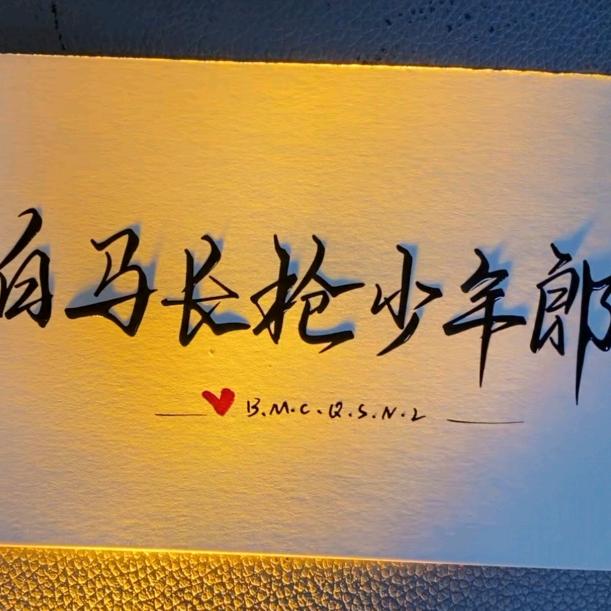 白马长枪少年郎
B.M.C.Q.S.N.L